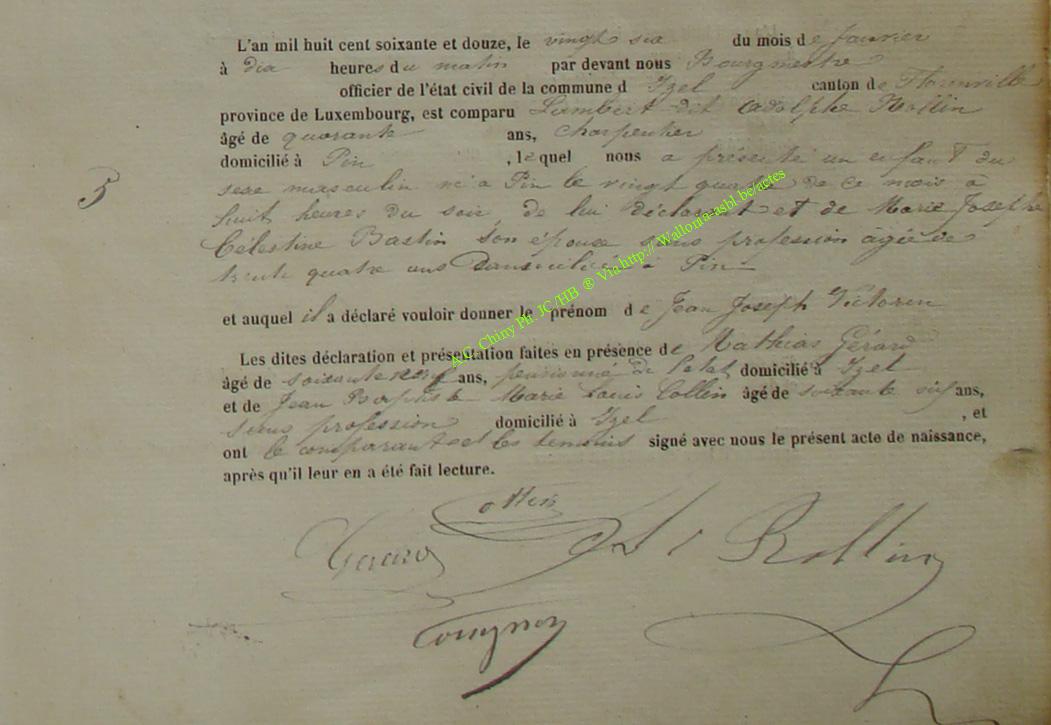 L'an mil huit cent soixante et douze, le vingt six du mois de Janvier
à dix heures du matin par devant nous Bourgmestre
officier de l'état civil de la commune d Izel canton de Florenville
province de Luxembourg, est comparu Lambert dit Adolphe Rollin
âgé de quarante ans, charpentier
domicilié à Pin , lequel nous a présenté un enfant du
5
sexe masculin né à Pin le vingt quatre de ce mois à
huit heures du soir de lui déclarant et de Marie Josephe
Célestine Bastin son épouse sans profession âgée de
trente quatre ans domiciliée à Pin
et auquel il a déclaré vouloir donner le prénom de Jean Joseph Victorin
Les dites déclaration et présentation faites en présence de Mathias Gérard
âgé de soixante ans, pensionné de l'état domicilié à Izel
et de Jean Baptiste Marie Louis Collin âgé de soixante six ans,
sans profession domicilié à Izel , et
ont le comparant et les temoins signé avec nous le présent acte de naissance,
après qu'il leur en a été fait lecture.
Gerard
Rollin
A.C. Chiny Ph. JC/HB ® Via http://Wallonia-asbl.be/actes